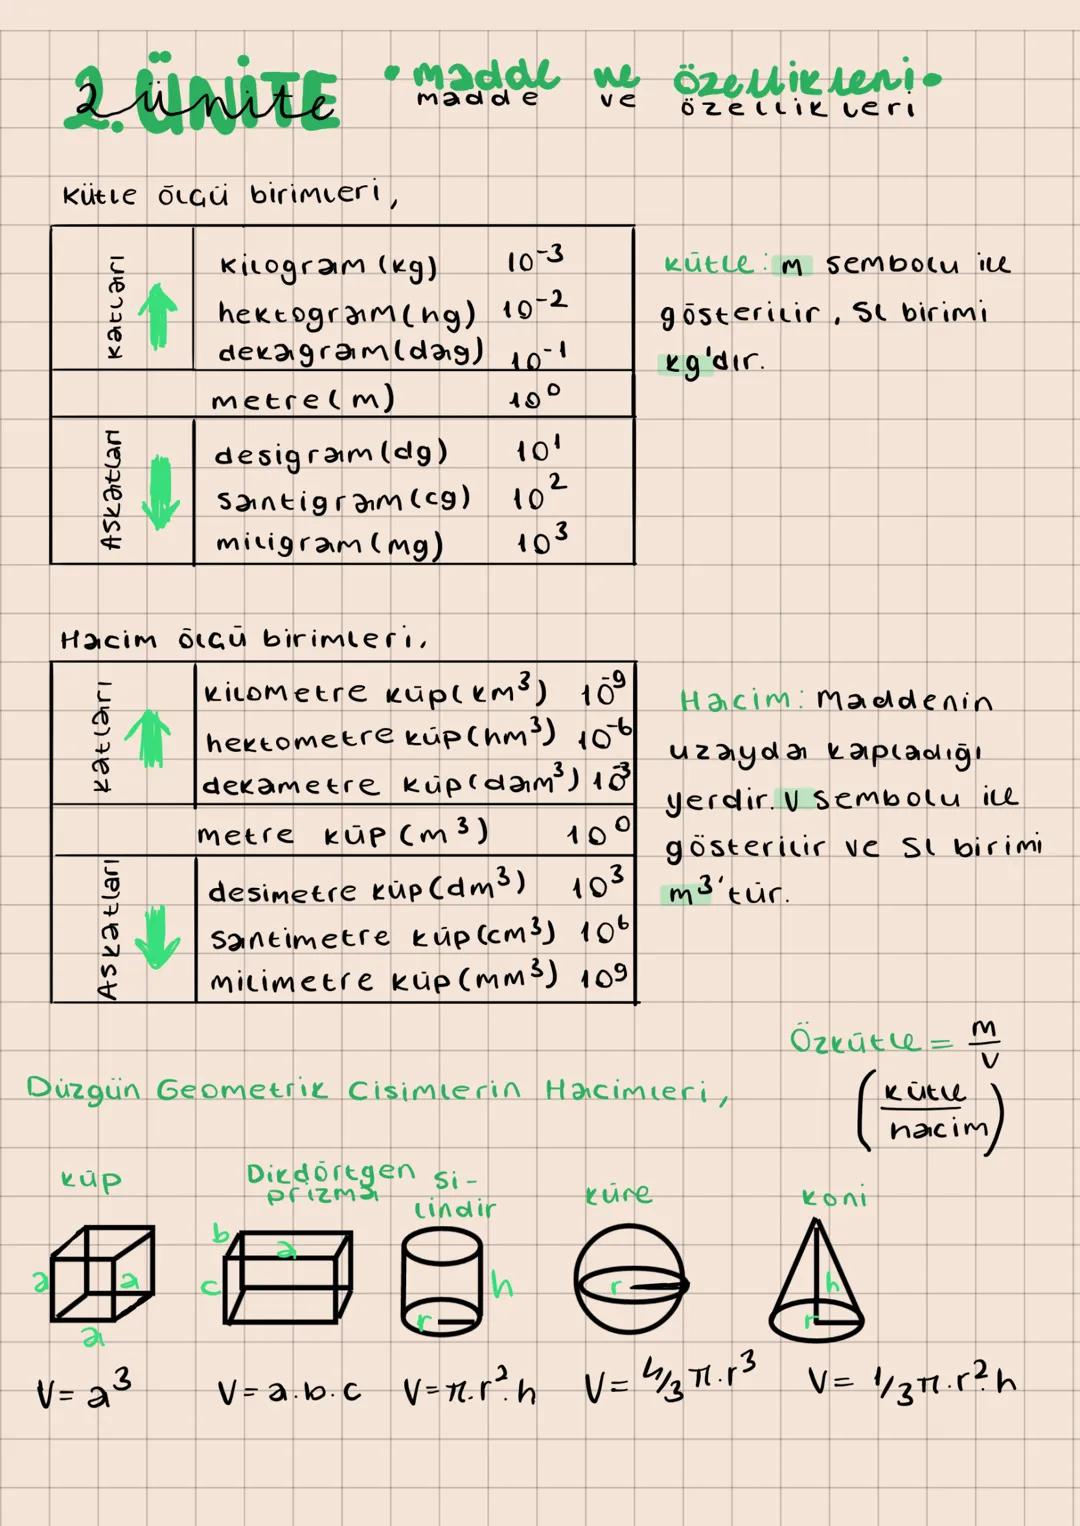 2. ÜNİTE
2. ünite
• madde ve özellikleri •
madde ve özellikleri
Kütle ölçü birimleri,
Katları
Kilogram (kg) 10⁻³
hektogram (hg) 10⁻²
dekagram (dag) 10⁻¹
metre (m) 10⁰
Askatları
desigram (dg) 10¹
santigram (cg) 10²
miligram (mg) 10³
Kütle: m sembolu ile
gösterilir, SI birimi
kg'dır.
Hacim ölçü birimleri,
Katları
kilometre küp (km³) 10⁻⁹
hektometre küp (hm³) 10⁻⁶
dekametre küp (dam³) 10⁻³
metre küp (m³) 10⁰
Askatları
desimetre küp (dm³) 10³
santimetre küp (cm³) 10⁶
milimetre küp (mm³) 10⁹
Hacim: Maddenin
uzayda kapladığı
yerdir. V sembolu ile
gösterilir ve SI birimi
m³'tür.
Özkütle = m/V
(kütle/hacim)
Düzgün Geometrik Cisimlerin Hacimleri,
küp
a a a
V= a³
Dikdörtgen
prizma
b a c
V= a.b.c
si-
lindir
h r
V= π.r².h
küre
r
V= 4/3 π.r³
koni
h r
V= 1/3 π.r².h